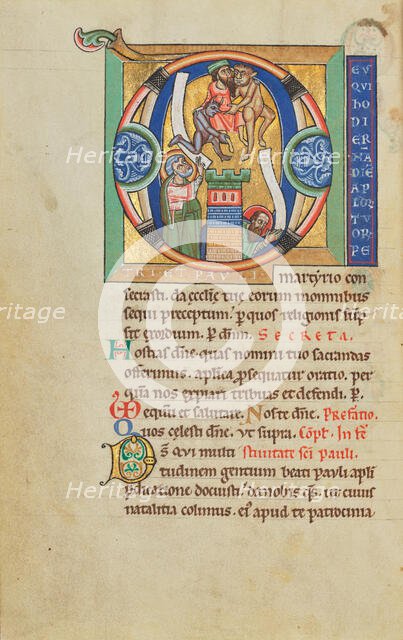 EUS
QUI HODI
ERN
A DIE
APL
ORU
TUOR
PE
TRI ET PAULI
martyrio con
secrasti. da ecclie tue eorum in omnibus
sequi preceptum. p quos religionis sup
sit exordium. P dnm. Secreta.
Hostias dne. quas nomini tuo sacrandas
offerimus. aplica psequatur oratio. per
quam nos expiari tribuas et defendi. P.
equu et salutare. Nos te dne. Prefatio.
Quos celesti dne. ut supra. Cōpl. In fe
Ds qui multi stiuitate sci Pauli.
tudinem gentium beati pauli apli
pdicatione docuisti. da nobis qs. ut cuius
natalitia colimus. ei apud te patrocinia
Heritage
Heritage
Heritage
Heritage
Heritage
Heritage